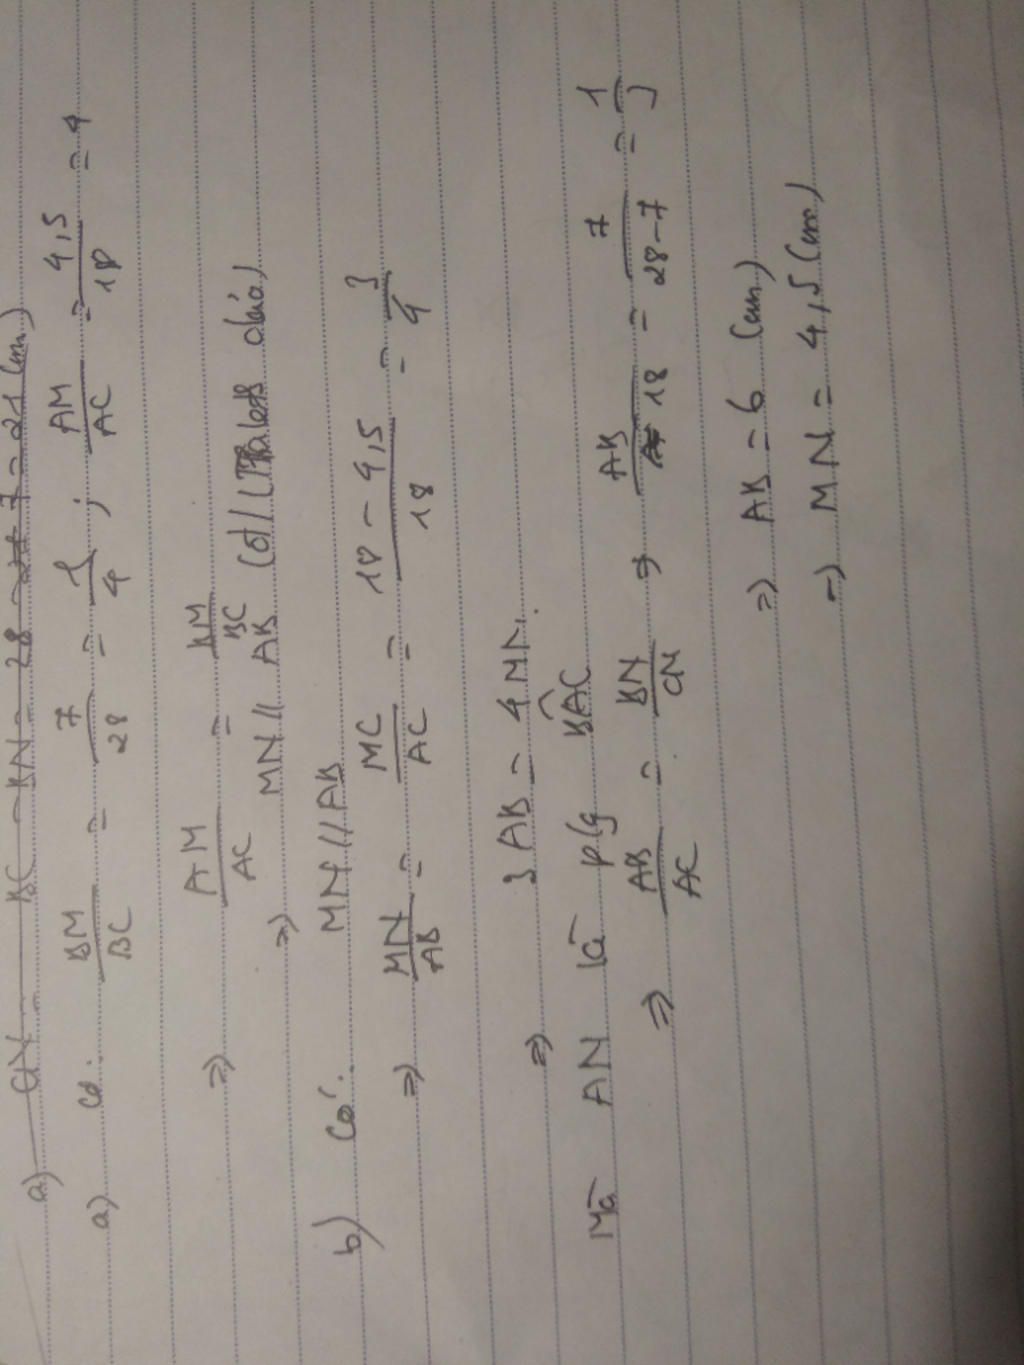 a) CN = BC - BN = 28 - 7 = 21 (cm)
a) Có: BM/BC = 7/28 = 1/4 ; AM/AC = 4,5/18 = 4
=> AM/AC = BM/BC
=> MN // AB (đ/l Talets đảo)
b) Có: MN // AB
=> MN/AB = MC/AC = 18 - 4,5/18 = 3/4
=> 3 AB = 4 MN.
Mà AN là p/g BAC
=> AB/AC = BN/CN => AB/18 = 7/28-7 = 1/3
=> AB = 6 (cm)
=> MN = 4,5 (cm)